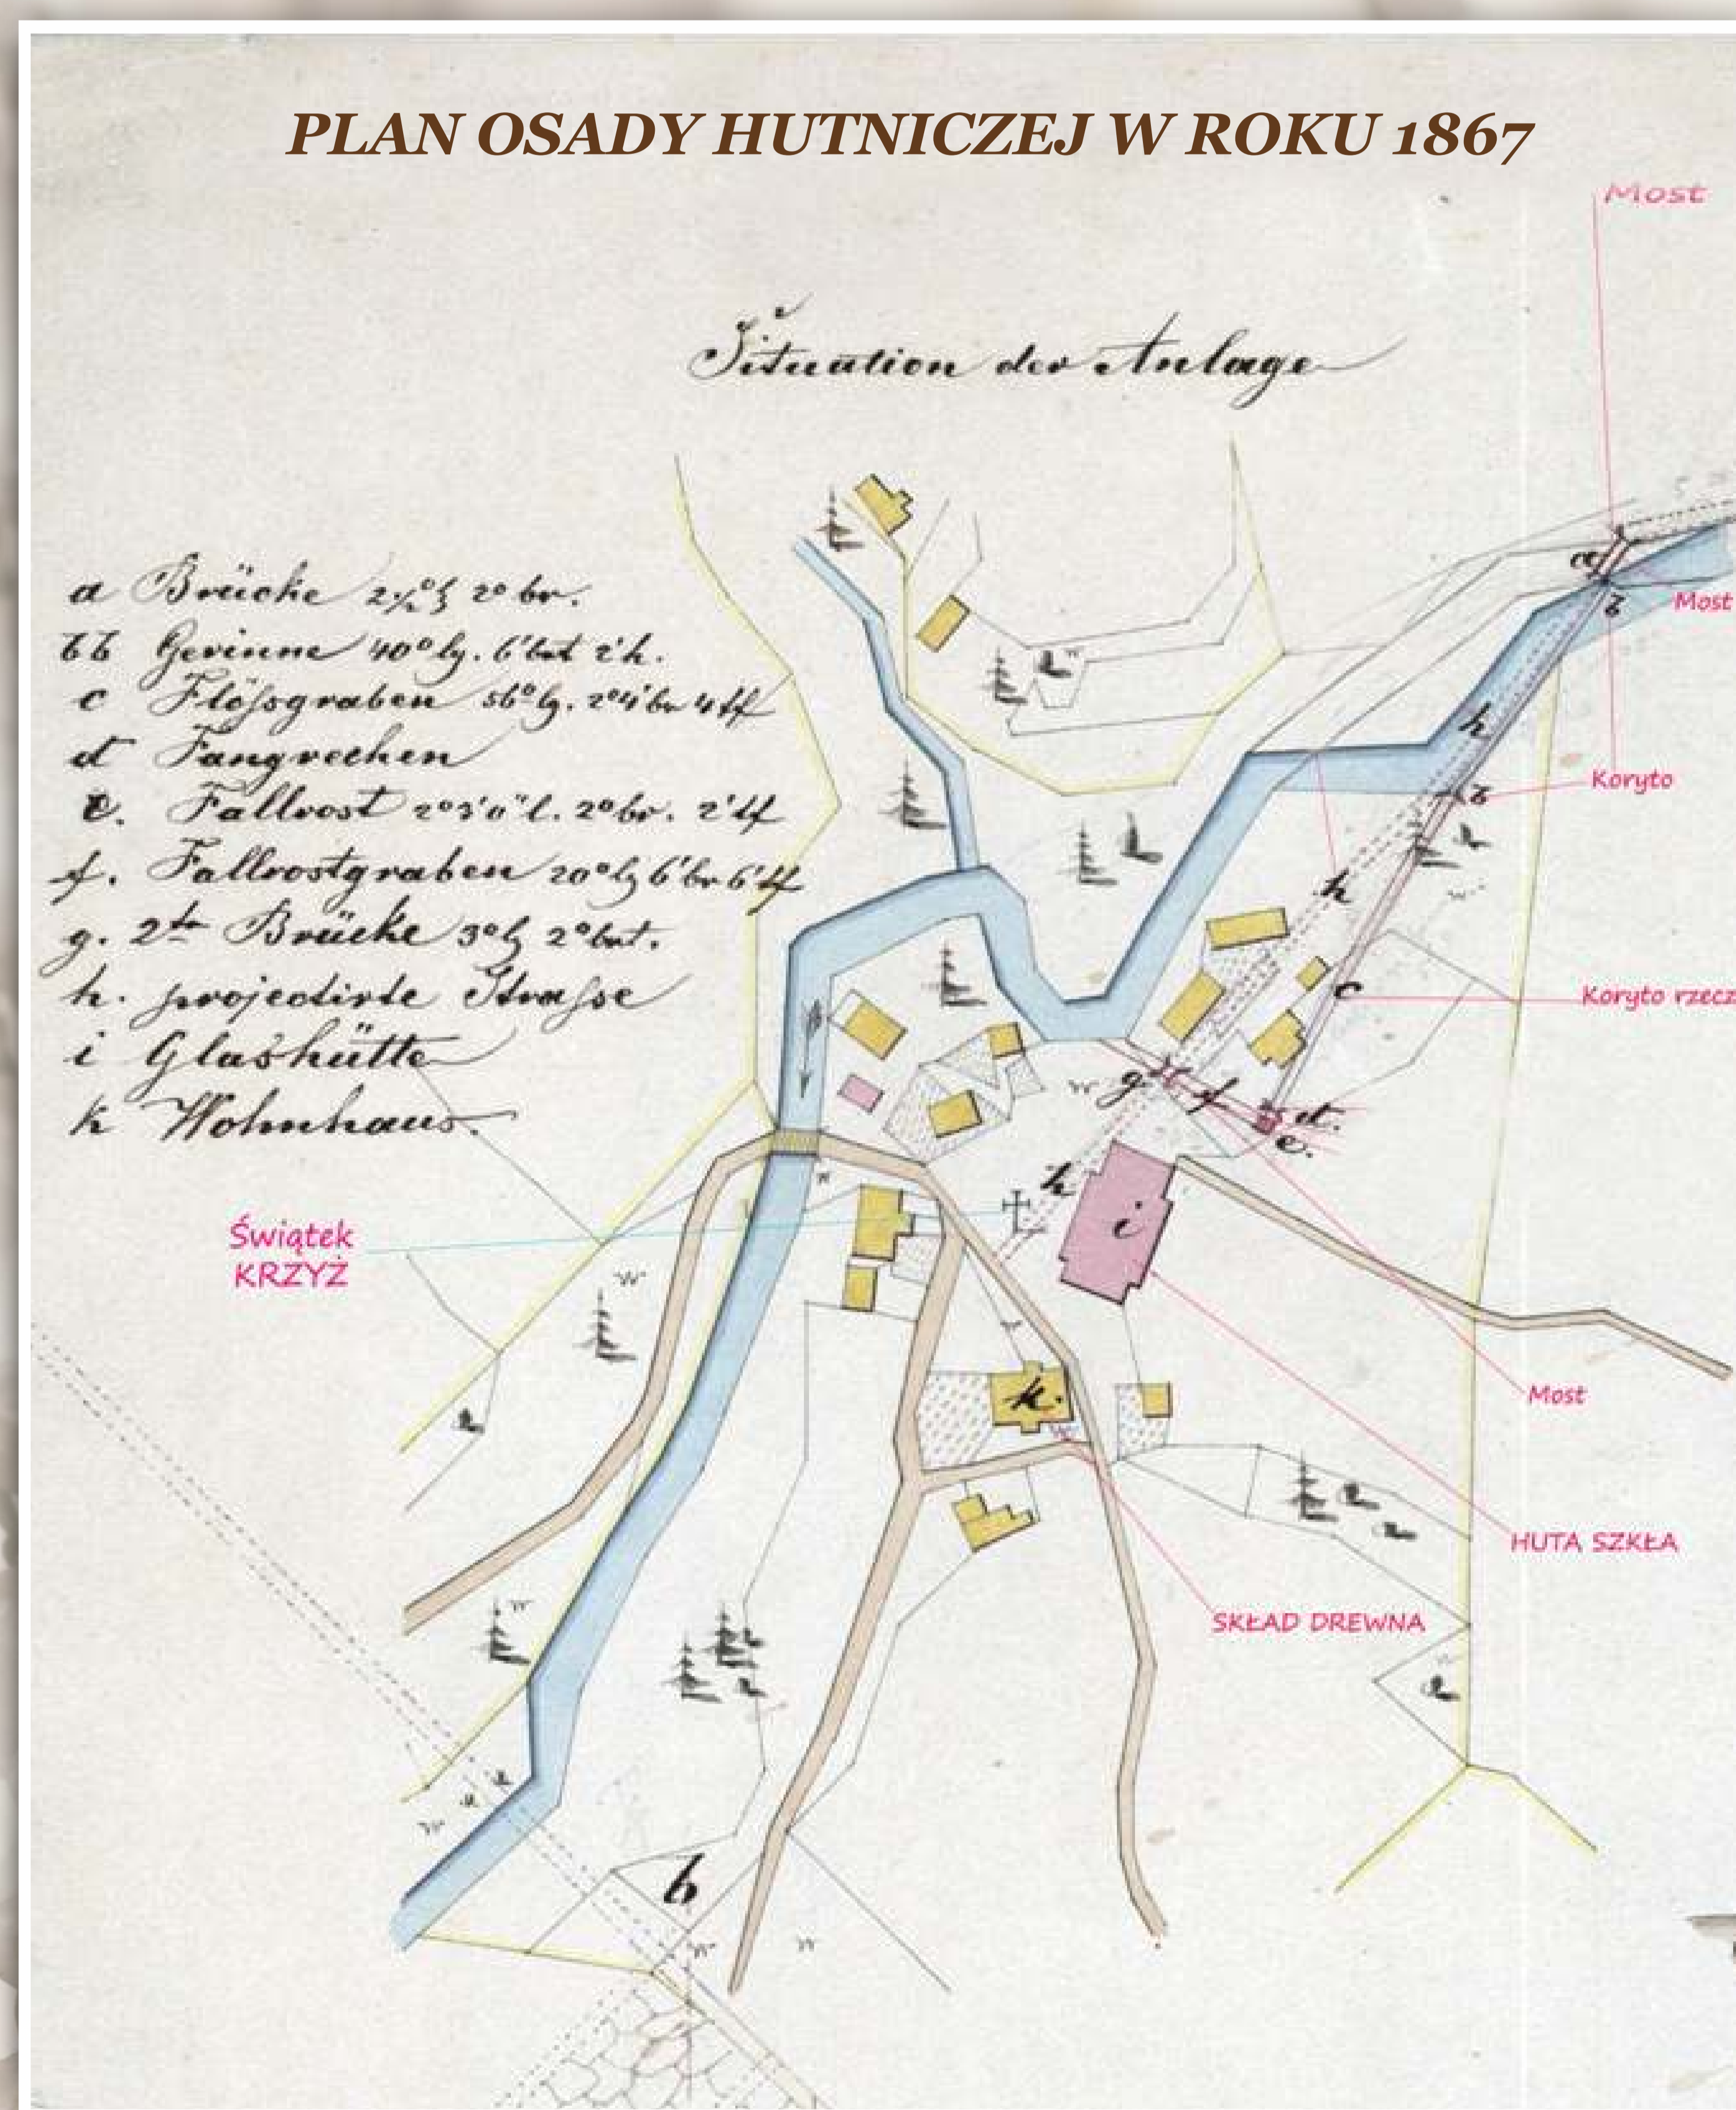 PLAN OSADY HUTNICZEJ W ROKU 1867
Most
Situation der Anlage
a Brücke 2½° lg 2° br.
bb Gerinne 40° lg. 6' brt 2' h.
c Flössgraben 56° lg. 2° 4' br 4' tf
d Fangrechen
e. Fallrost 2° 3' 0" l. 2° br. 2' tf
f. Fallrostgraben 20° lg 6' br 6' tf
g. 2te Brücke 3° lg 2° brt.
h. projectirte Strasse
i Glashütte
k Wohnhaus.
a
b
Most
h
b
Koryto
h
c
Koryto rzecz
g.
f
d.
e.
h
i
Świątek
KRZYŻ
k.
Most
HUTA SZKŁA
SKŁAD DREWNA
b